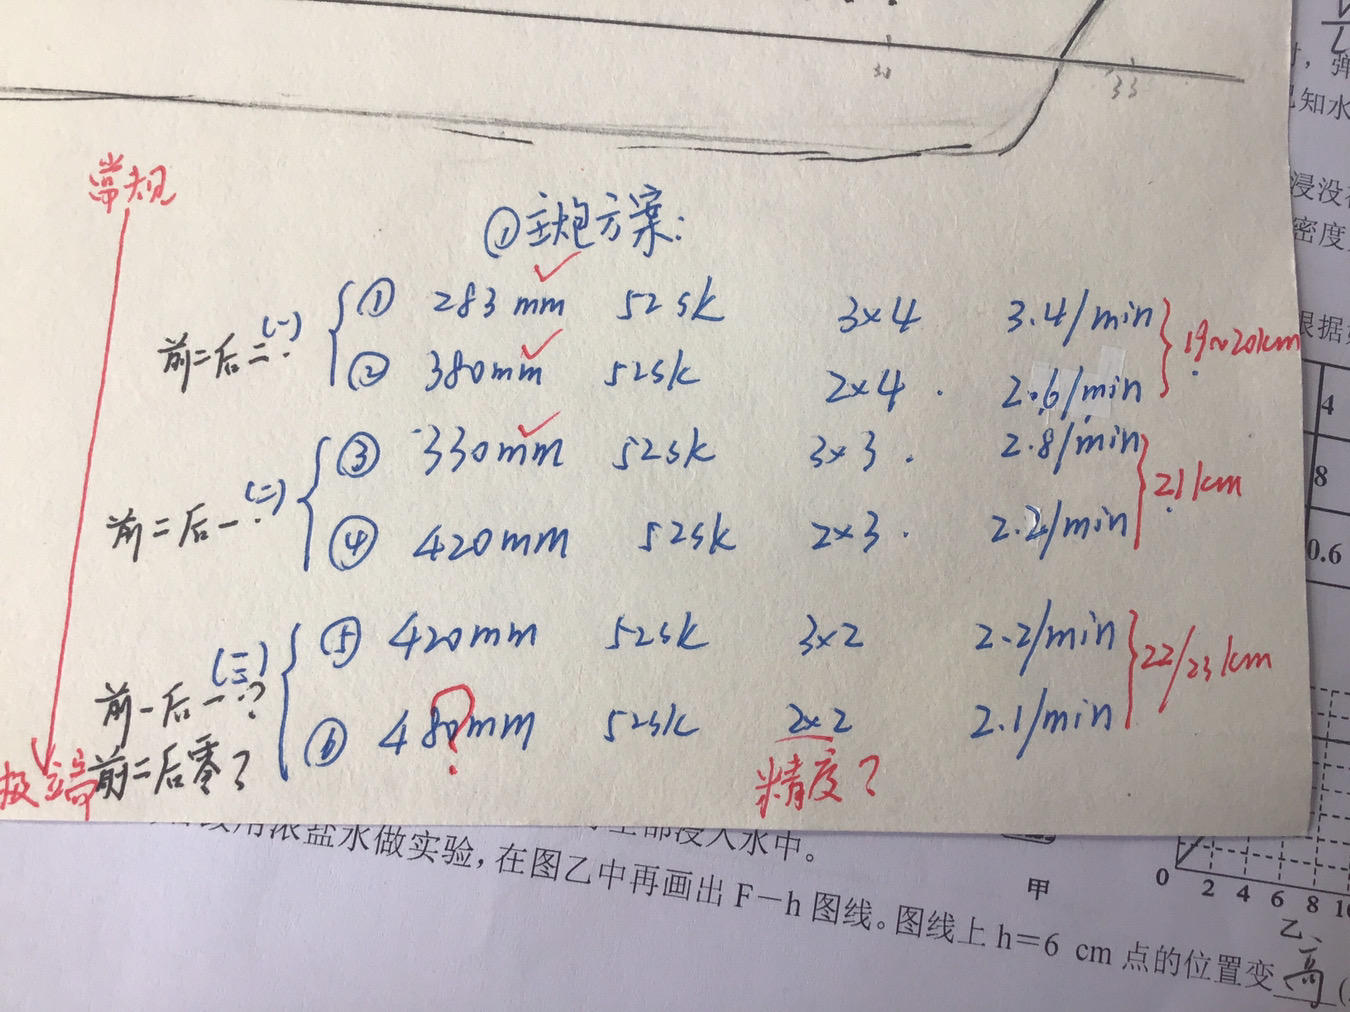 30
33
常规
①主炮方案:
前二后二. (一) ① 283mm 52sk 3×4 3.4/min 19~20km
② 380mm 52sk 2×4 2.6/min
前二后一. (二) ③ 330mm 52sk 3×3 2.8/min 21km
④ 420mm 52sk 2×3 2.2/min
前一后一? (三) ⑤ 420mm 52sk 3×2 2.2/min 22/23km
前二后零? ⑥ 480mm ? 52sk 2×2 2.1/min
极端
精度?
已知水
浸没
密度
根据
4
8
0.6
用浓盐水做实验,在图乙中再画出F-h图线。图线上h=6 cm点的位置变高
全部浸入水中。
甲
0 2 4 6 8 10
乙